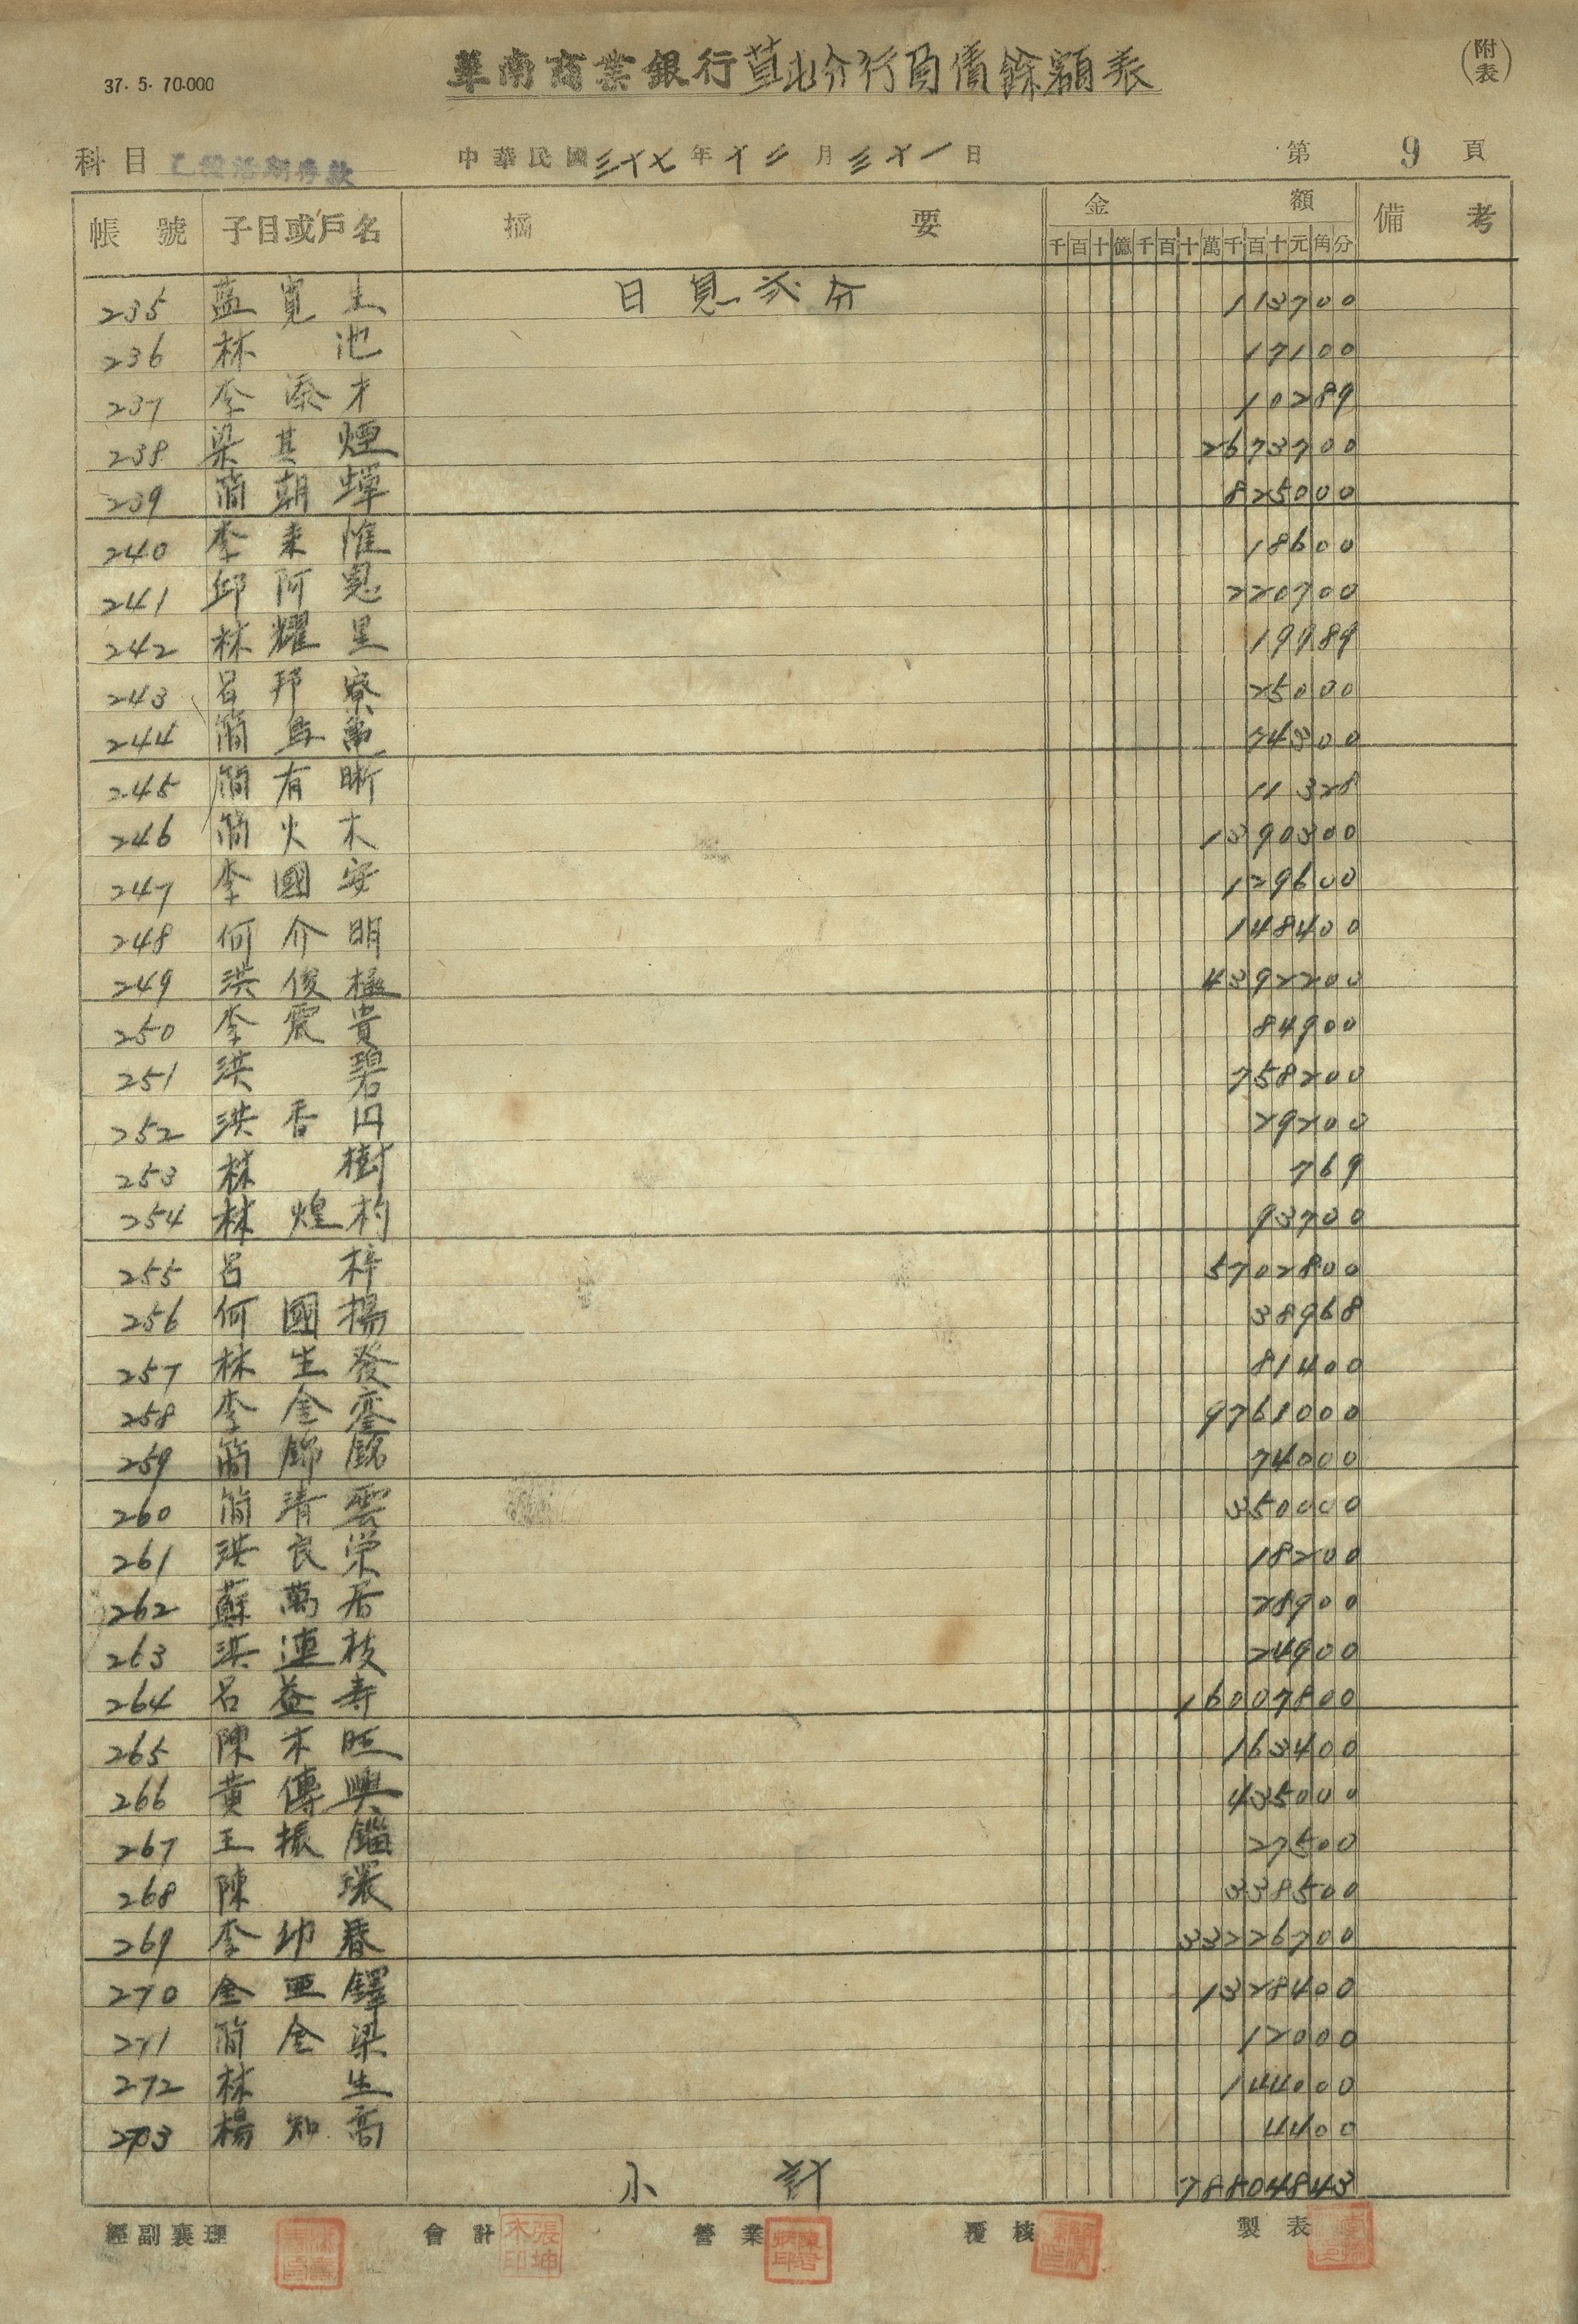 37. 5. 70.000
華南商業銀行草屯分行負債餘額表
(附表)
科目 乙種活期存款 中華民國三十七年十二月三十一日 第 9 頁
帳號 子目或戶名 摘要 金額 備考
千百十億千百十萬千百十元角分
235 藍寬 日息弍分 113700
236 林池 17100
237 李添才 10289
238 梁其煙 2673700
239 簡朝蟬 825000
240 李来惟 18600
241 邱阿 220700
242 林耀星 19989
243 呂邦寮 25000
244 簡 74300
245 簡有晰 11328
246 簡火木 1390300
247 李國安 129600
248 何介明 148400
249 洪俊極 4392200
250 李震貴 84900
251 洪碧 758200
252 洪香円 29200
253 林樹 769
254 林煌杓 93700
255 呂梓 5702800
256 何國揚 38968
257 林生發 81400
258 李金鑾 9761000
259 簡錦銘 74000
260 簡清雲 350000
261 洪良栄 18200
262 蘇萬居 28900
263 洪連枝 24900
264 呂益寿 16007800
265 陳木旺 163400
266 黄傳興 435000
267 王振錙 27500
268 陳環 338500
269 李印春 33226700
270 金亜鐸 1328400
271 簡金梁 12000
272 林生 144000
273 楊知高 4400
小計 78804843
經副襄理 會計 營業 覆核 製表
張坤木印